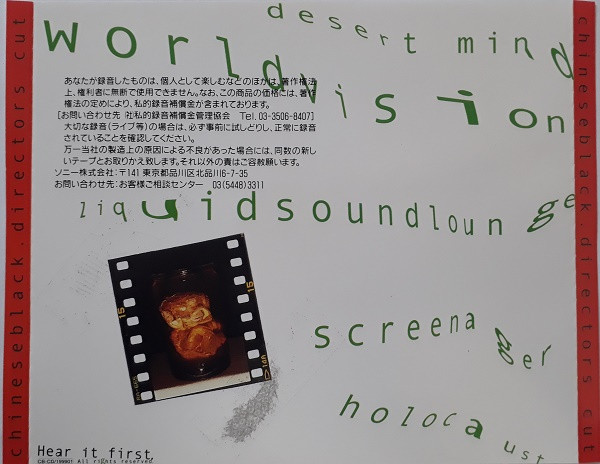 chineseblack.directors cut
desert mind
worldvision
あなたが録音したものは、個人として楽しむなどのほかは、著作権法
上、権利者に無断で使用できません。なお、この商品の価格には、著作
権法の定めにより、私的録音補償金が含まれております。
[お問い合せ先 ㈳私的録音補償金管理協会 Tel.03-3506-8407]
大切な録音(ライブ等)の場合は、必ず事前に試しどりし、正常に録音
されていることを確認してください。
万一当社の製造上の原因による不良があった場合には、同数の新し
いテープとお取りかえ致します。それ以外の責はご容赦願います。
ソニー株式会社:〒141 東京都品川区北品川6-7-35
お問い合わせ先:お客様ご相談センター 03(5448)3311
liquidsoundlounge
15
15
screenager
holocaust
Hear it first.
All rights reserved.
chineseblack.directors cut